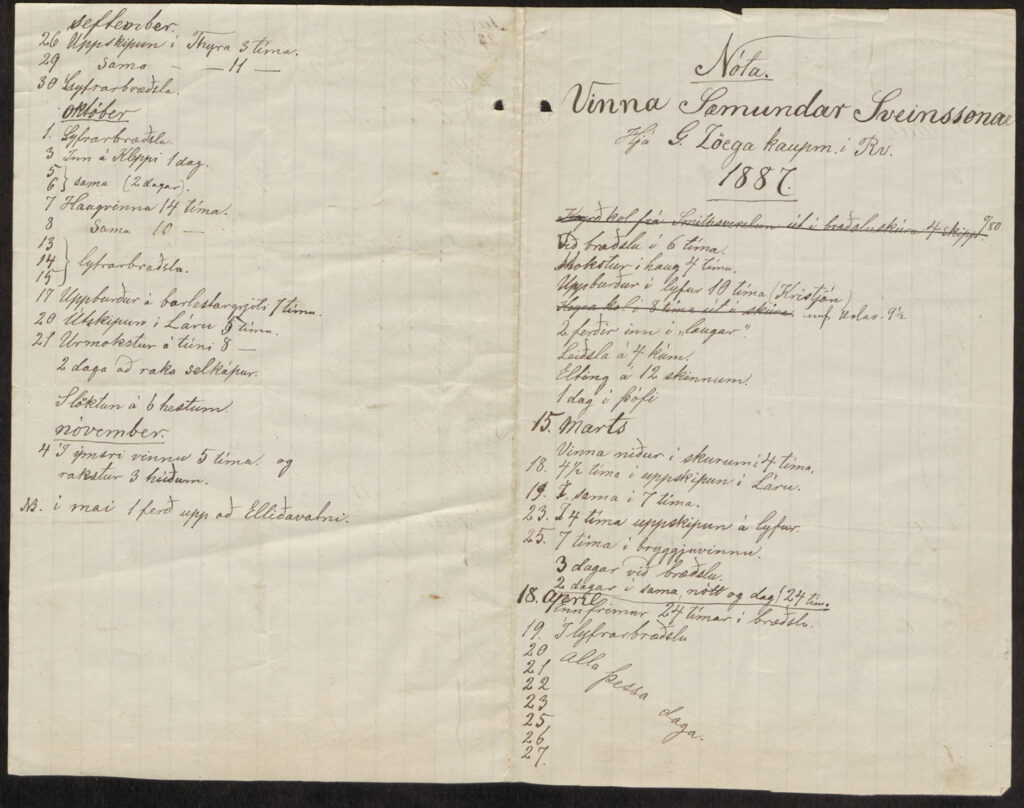 september.
26 Uppskipun í Thyra 3 tíma.
29 Sama — 11 —
30 Lyfrarbræðsla.
október
1. Lyfrarbræðsla
3 Inn á Kleppi 1 dag.
5
6 } sama (2 dagar).
7 Haugvinna 14 tíma.
8 Sama 10 —
13
14 } lyfrarbræðsla.
15
17 Uppburður á barlestargrjóti 7 tíma.
20 Útskipun í Láru 5 tíma.
21 Urmokstur á túni 8 —
2 daga að raka selkápur.
Slöktun á 6 hestum.
nóvember.
4 Í ýmsri vinnu 5 tíma. og
rakstur 3 húðum.
NB. í mai 1 ferð upp að Elliðavatni.
Nóta.
Vinna Sæmundar Sveinssonar
Hjá G. Zöega kaupm. í Rv.
1887.
Keyrð kol frá Smithsverslun út í bræðsluskúra 4 skipp. 0/80
Við bræðslu í 6 tíma.
Mokstur í haug 4 tíma.
Uppburður í lyfur 10 tíma (Kristján)
Keyra kol í 8 tíma út í skúra 9½
2 ferðir inn í „laugar".
Leiðsla á 4 kám.
Elting á 12 skinnum.
1 dag í þófi
15. Marts
Vinna niður í skurum í 4 tíma.
18. 4½ tíma í uppskipun í Láru.
19. Í sama í 7 tíma.
23. Í 4 tíma uppskipun á lyfur.
25. 7 tíma í bryggjuvinnu.
3 dagar við bræðslu.
2 dagar í sama, nótt og dag (24 tím.
18. April
Innfremur 24 tímar í bræðslu.
19. Í lyfrarbræðslu
20 alla
21 þessa
22 daga.
23
25,
26
27.